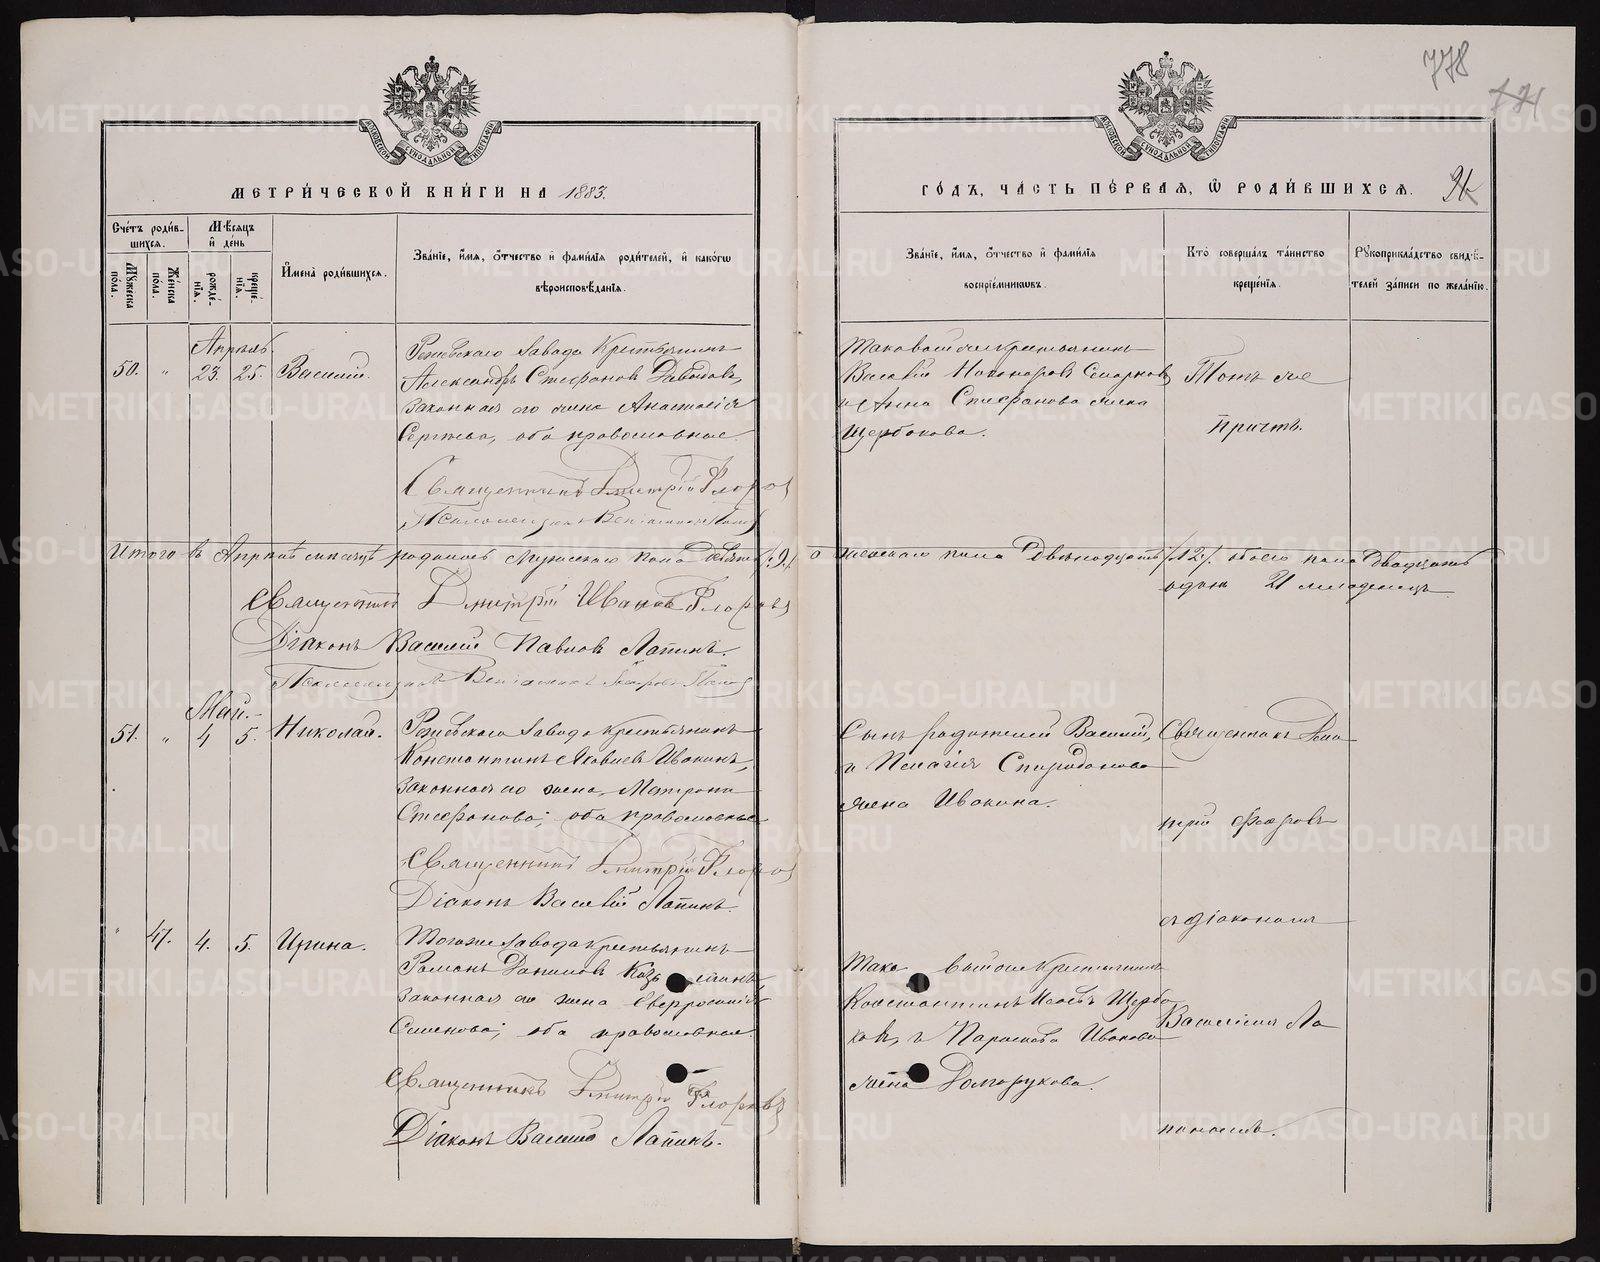 778
МЕТРИ́ЧЕСКОЙ КНИ́ГИ НА 1883.
ГО́ДЪ, ЧА́СТЬ ПЕ́РВАЯ, Ѡ҆ РОДИ́ВШИХСЯ.
Сче́тъ роди́в-
шихся.
Мꙋ́жеска по́ла.
Же́нска по́ла.
Мѣ́сяцъ
и҆ де́нь
рожде́-нїя.
креще́-нїя.
И҆мена̀ роди́вшихся.
Зва́нїе, и҆́мя, ѻ҆́тчество и҆ фами́лїя роди́телей, и҆ како́гѡ
вѣроисповѣ́данїя.
Зва́нїе, и҆́мя, ѻ҆́тчество и҆ фами́лїя
воспрїе́мникѡвъ.
Кто̀ соверша́лъ та́инство
креще́нїя.
Рꙋкоприкла́дство свидѣ́-
телей за́писи по жела́нїю.
Апрель.
50. " 23. 25. Василий.
Режевскаго завода крестьянинъ
Александръ Стефановъ
законная его жена Анастасія
Сергѣева, оба православные.
Священникъ Димитрій Флоровъ
Псаломщикъ Веніаминъ Поповъ
Таковой же крестьянинъ
Василій Никаноровъ
и Анна Стефанова жена
Щербакова.
Тотъ же
причтъ.
Итого въ Апрѣлѣ мѣсяцѣ родилось мужескаго пола девять /9/, а женскаго пола двѣнадцать /12/. обоего пола двадцать
одинъ 21 младенецъ.
Священникъ Димитрій Ивановъ Флоровъ
Діаконъ Василій Павловъ Лапинъ.
Псаломщикъ Веніаминъ Поповъ
Май.
51. " 4 5. Николай.
Режевскаго завода крестьянинъ
Константинъ Яковлевъ Ивакинъ,
законная его жена, Матрона
Стефанова; оба православные
Священникъ Димитрій Флоровъ
Діаконъ Василій Лапинъ.
Сынъ родителей Василій,
и Пелагія Спиридонова
жена Ивакина.
Священникъ Дими
трій Флоровъ
съ діакономъ
Василіемъ Ла
пинымъ.
" 47. 4. 5. Ирина.
Тогоже завода крестьянинъ
Романъ Даниловъ
законная его жена Евфросинія
Семенова; оба православные.
Священникъ Димитрій Флоровъ
Діаконъ Василій Лапинъ.
Тако вой же крестьянинъ
Константинъ Щерба
ковъ, и Параскева Иванова
жена Долгорукова.
METRIKI.GASO-URAL.RU